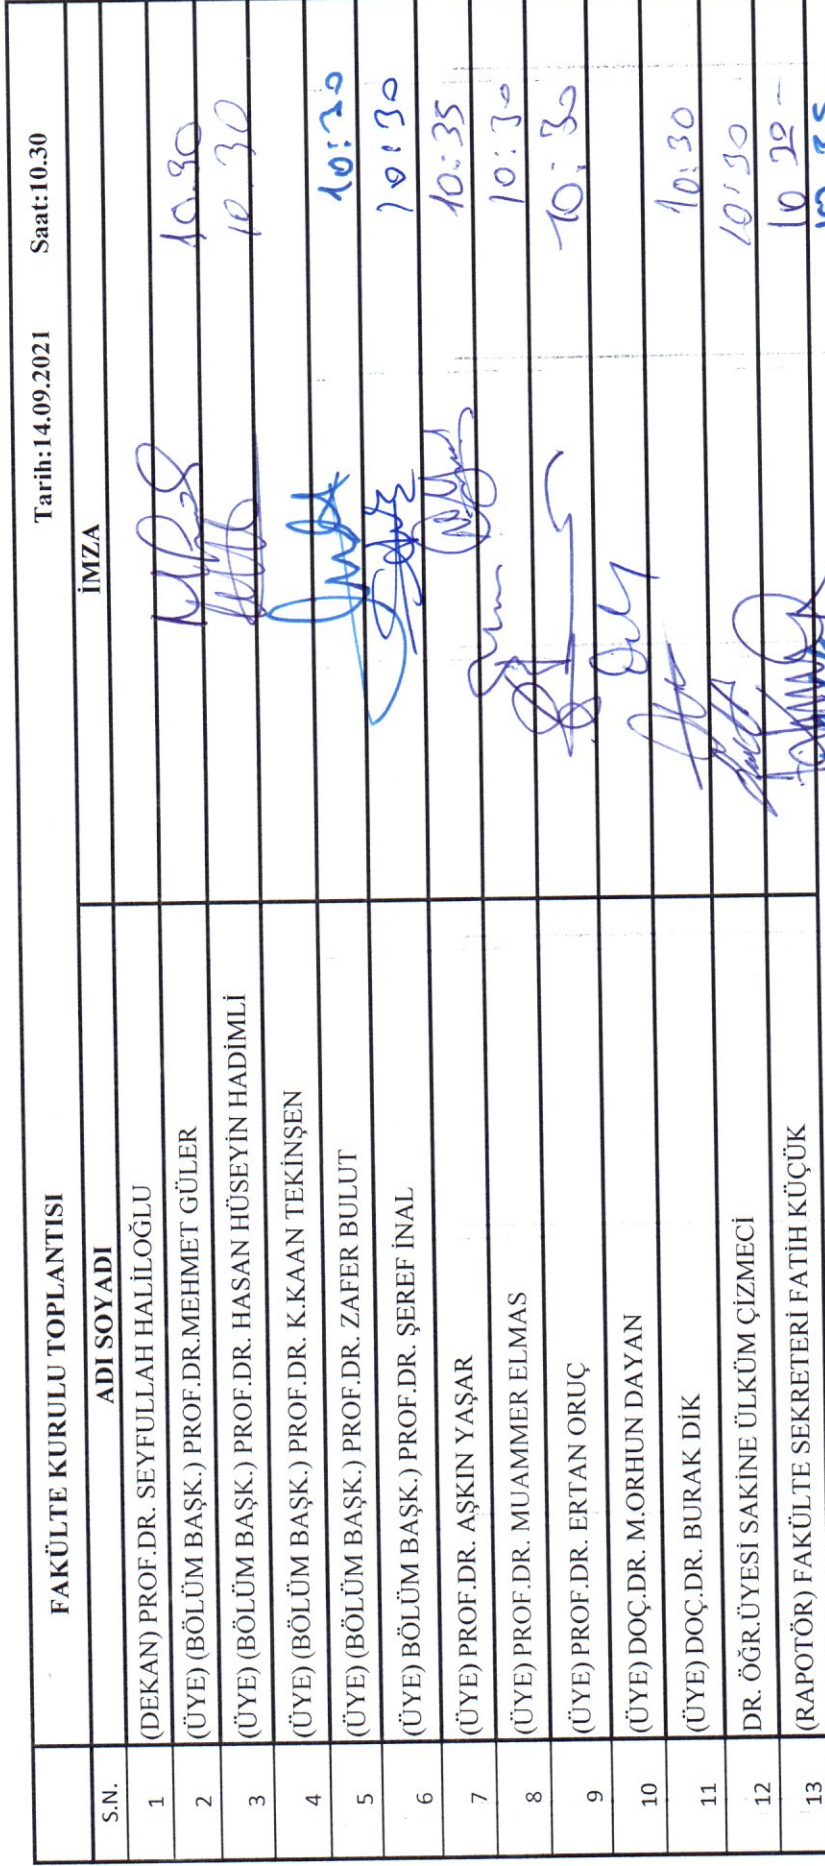 FAKÜLTE KURULU TOPLANTISI Tarih:14.09.2021 Saat:10.30
S.N. ADI SOYADI İMZA
1 (DEKAN) PROF.DR. SEYFULLAH HALİLOĞLU
2 (ÜYE) (BÖLÜM BAŞK.) PROF.DR.MEHMET GÜLER 10.30
3 (ÜYE) (BÖLÜM BAŞK.) PROF.DR. HASAN HÜSEYİN HADİMLİ 10 30
4 (ÜYE) (BÖLÜM BAŞK.) PROF.DR. K.KAAN TEKİNŞEN
5 (ÜYE) (BÖLÜM BAŞK.) PROF.DR. ZAFER BULUT
6 (ÜYE) BÖLÜM BAŞK.) PROF.DR. ŞEREF İNAL 10:30
7 (ÜYE) PROF.DR. AŞKIN YAŞAR 10:35
8 (ÜYE) PROF.DR. MUAMMER ELMAS 10:30
9 (ÜYE) PROF.DR. ERTAN ORUÇ 10:30
10 (ÜYE) DOÇ.DR. M.ORHUN DAYAN
11 (ÜYE) DOÇ.DR. BURAK DİK 10:30
12 DR. ÖĞR.ÜYESİ SAKİNE ÜLKÜM ÇİZMECİ 10:30
13 (RAPOTÖR) FAKÜLTE SEKRETERİ FATİH KÜÇÜK